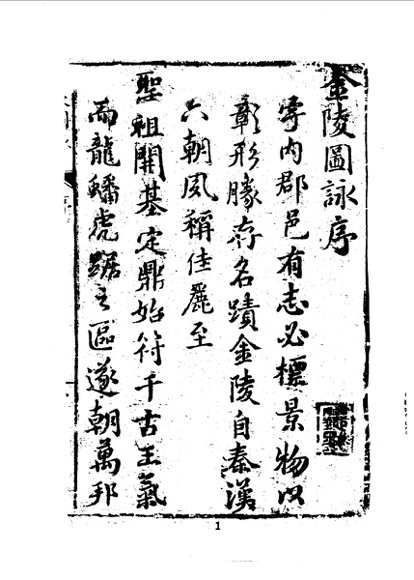 金陵圖詠序
寰內郡邑有志必標景物以
彰形勝存名蹟金陵自秦漢
六朝風稱佳麗至
聖祖開基定鼎始符千古王氣
而龍蟠虎踞之區遂朝萬邦
1